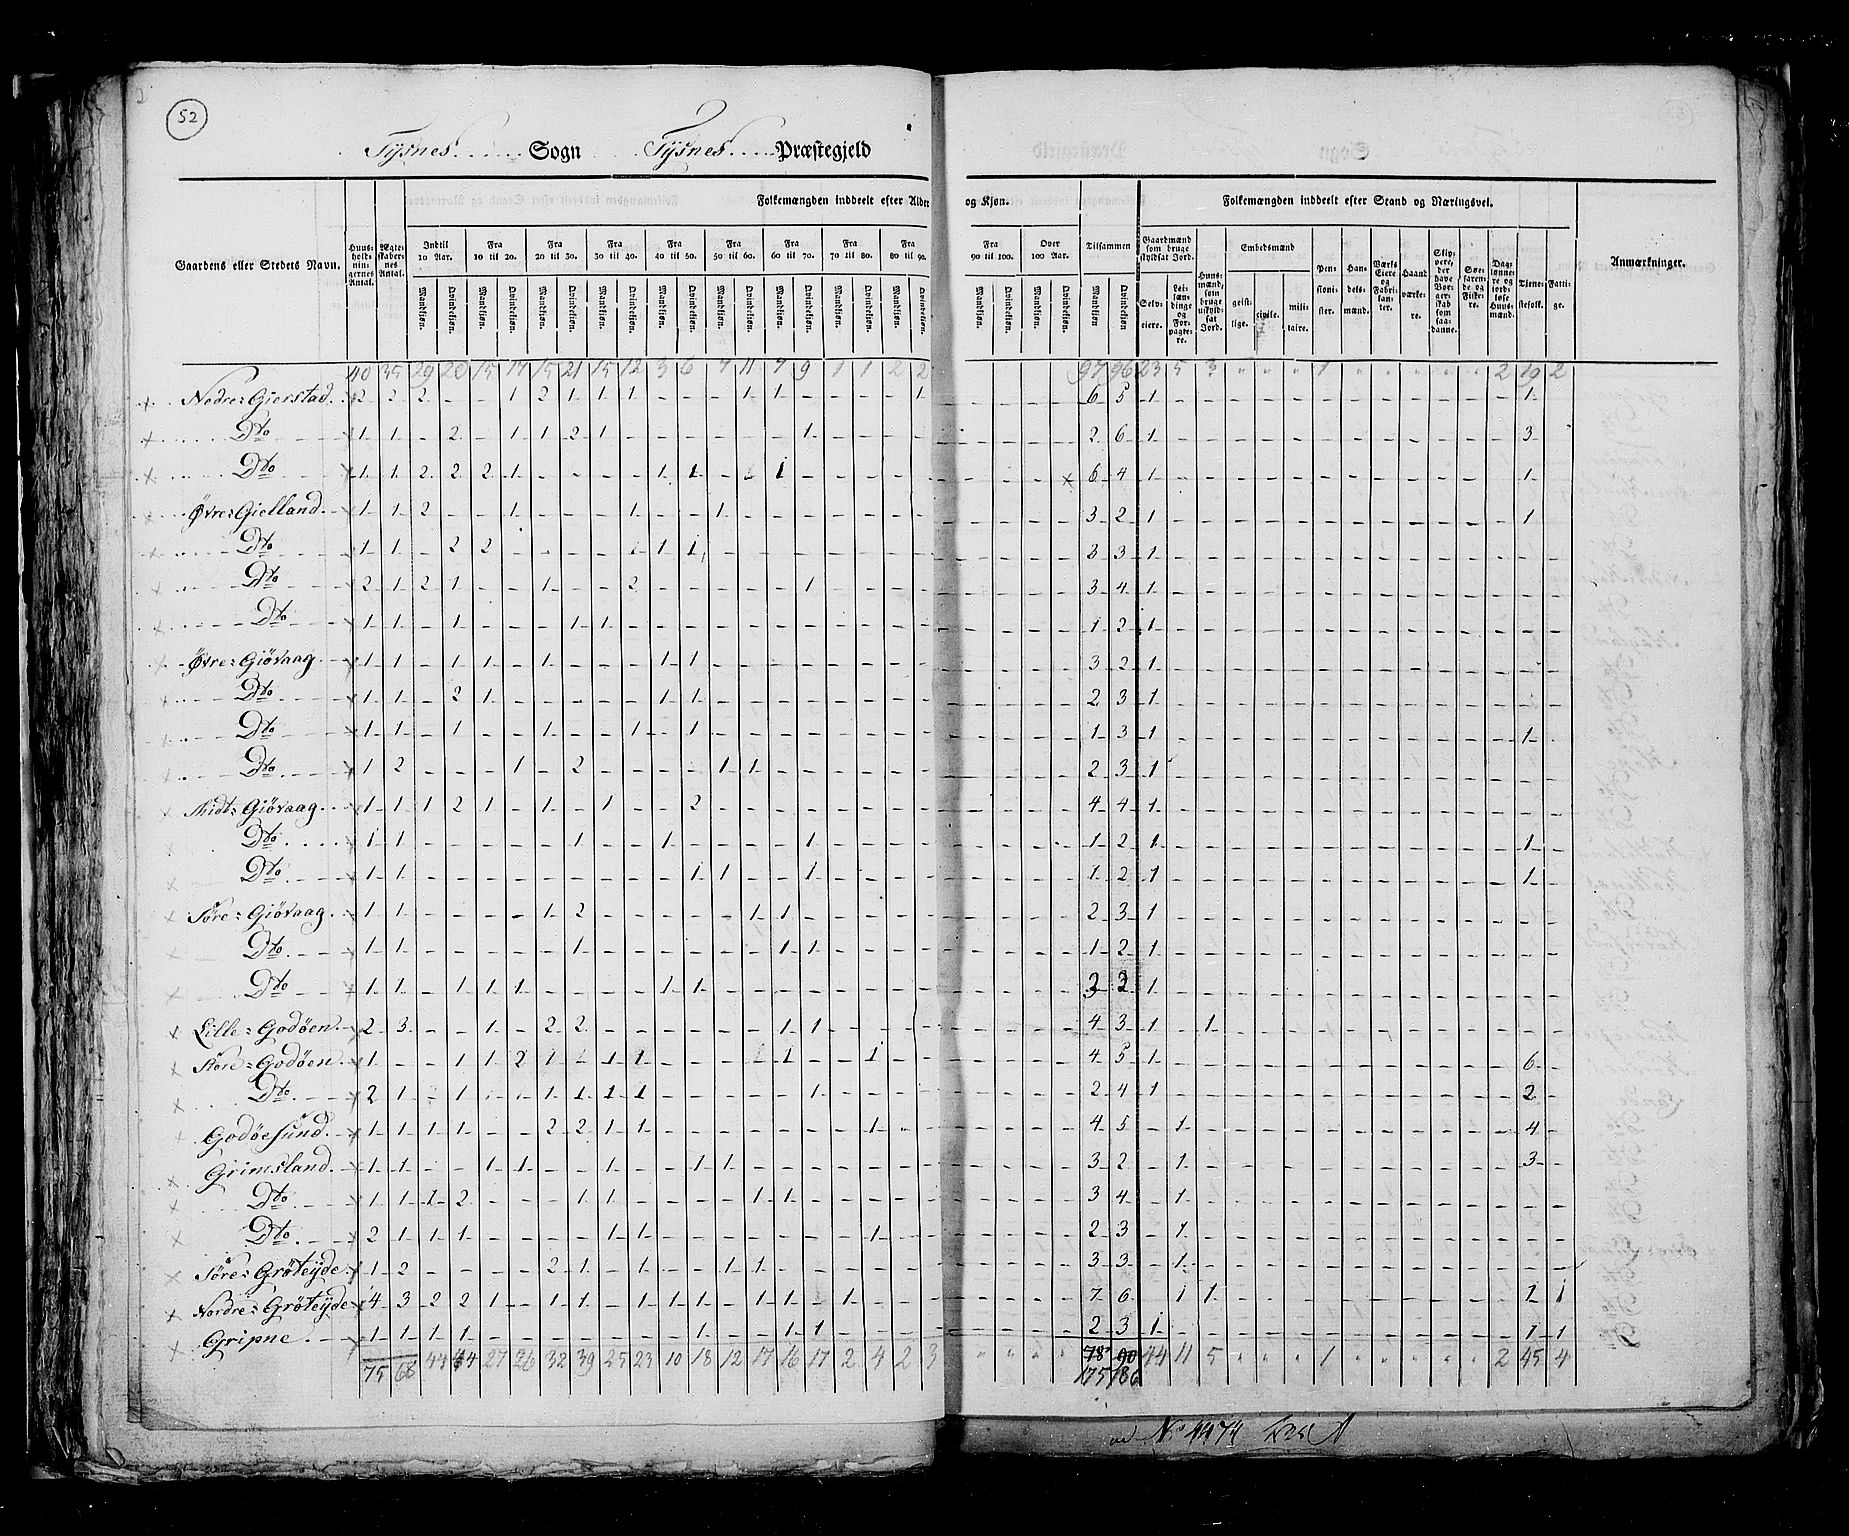 52
Tysnes Sogn Tysnes Præstegjeld
Folkemængden inddeelt efter Alder og Kjøn. Folkemængden inddeelt efter Stand og Næringsvei.
Gaardens eller Stedets Navn. Huus-holdnin-gernes Antal. Ægte-skaber-nes Antal. Indtil 10 Aar. Fra 10 til 20. Fra 20 til 30. Fra 30 til 40. Fra 40 til 50. Fra 50 til 60. Fra 60 til 70. Fra 70 til 80. Fra 80 til 90. Fra 90 til 100. Over 100 Aar. Tilsammen Gaardmænd som bruge skyldsat Jord. Huus-mænd, som bruge uskyld-sat Jord. Embedsmænd Pen-sioni-ster. Han-dels-mænd. Værks Eiere og Fabri-kan-ter. Haand værke-re. Skip-pere, der have Bor-ger-skab som saa-danne. Søe-faren-de og Fiske-re. Dag-lønne-re og jord-løse Huus-mænd. Tiene-stefolk. Fatti-ge. Anmærkninger.
Mandkjøn. Qvindekjøn. Mandkjøn. Qvindekjøn. Mandkjøn. Qvindekjøn. Mandkjøn. Qvindekjøn. Mandkjøn. Qvindekjøn. Mandkjøn. Qvindekjøn. Mandkjøn. Qvindekjøn. Mandkjøn. Qvindekjøn. Mandkjøn. Qvindekjøn. Mandkjøn. Qvindekjøn. Mandkjøn. Qvindekjøn. Mandkjøn. Qvindekjøn. Selv-eiere. Lei-læn-dinge og For-pagte-re. geist-lige. civile. mili-taire.
40 35 29 20 15 17 15 21 15 12 3 6 7 11 7 9 1 1 2 2 97 96 23 5 3 " " " 1 " " " " " 2 19 2
Nedre-Gierstad 2 2 2 - - 1 2 1 1 1 - - - 1 1 - - - - 1 - - - - 6 5 1 - - - - - - - - - - - - 1 -
Dto 1 1 - 2 - 1 1 2 1 - - - - - - 1 - - - - - - - - 2 6 1 - - - - - - - - - - - - 3 -
Dto 1 1 2 2 2 1 - - - - 1 1 - 1 1 - - - - - - - - 6 4 1 - - - - - - - - - - - - 1 -
Øvre-Gielland 1 1 2 - - 1 - - - 1 - - 1 - - - - - - - - - - - 3 2 1 - - - - - - - - - - - - 1 -
Dto 1 1 - 2 2 - - - - 1 1 1 - - - - - - - - - - - 3 3 1 - - - - - - - - - - - - - -
Dto 2 1 2 1 - - 1 - - 2 - - - - - 1 - - - - - - - - 3 4 1 - - - - - - - - - - - - - -
Dto 1 1 - 1 - - - 1 1 - - - - - - - - - - - - - - - 1 2 1 - - - - - - - - - - - - - -
Øvre-Giøvaag 1 1 - 1 1 - 1 - - - 1 1 - - - - - - - - - - - - 3 2 1 - - - - - - - - - - - - - -
Dto 1 1 - 2 1 - - - - - 1 1 - - - - - - - - - - - - 2 3 1 - - - - - - - - - - - - - -
Dto 1 1 - 1 - - 1 - - 1 - 1 - - - - - - - - - - - - 1 3 1 - - - - - - - - - - - - 1 -
Dto 1 2 - - - 1 - 2 - - - - 1 1 - - - - - - - - - - 2 3 1 - - - - - - - - - - - - - -
Midt-Giøvaag 1 1 1 2 1 - 1 - 1 - - 2 - - - - - - - - - - - - 4 4 1 - - - - - - - - - - - - - -
Dto 1 1 - - - - - 1 - - 1 - - - - 1 - - - - - - - - 1 2 1 - - - - - - - - - - - - 1 -
Dto 1 1 - - - - - - - - - 1 1 - - 1 - - - - - - - - 1 2 1 - - - - - - - - - - - - 1 -
Søre-Giøvaag 1 1 - - - - 1 2 - - - - - 1 1 - - - - - - - - - 2 3 1 - - - - - - - - - - - - - -
Dto 1 1 - - - - - 1 - - - - - - 1 1 - - - - - - - - 1 2 1 - - - - - - - - - - - - - -
Dto 1 1 - 1 1 1 - - - - 1 1 - - - - - - - - - - - - 3 2 1 - - - - - - - - - - - - - -
Lille-Godøen 2 3 - - 1 - 2 2 - - - - - - 1 1 - - - - - - - - 4 3 1 - 1 - - - - - - - - - - - -
Store-Godøen 1 - - 1 1 2 1 - 1 1 - - - 1 1 - - 1 - - - - - - 4 5 1 - - - - - - - - - - - - 6 -
Dto 2 1 - 1 - - 1 1 1 1 - - - - - 1 - - - - - - - - 2 4 1 - - - - - - - - - - - - 2 -
Godøesund 1 1 1 1 - - 2 2 1 1 - - - - - - - 1 - - - - - - 4 5 - 1 - - - - - - - - - - - 4 -
Grimsland 1 1 - - 1 1 - - 1 - - 1 1 - - - - - - - - - - - 3 2 - 1 - - - - - - - - - - - 3 -
Dto 1 1 1 2 - - - 1 1 - - - - 1 1 - - - - - - - - - 3 4 - 1 - - - - - - - - - - - - -
Dto 2 1 1 1 - - - - 1 1 - - - - - - - 1 - - - - - - 2 3 - 1 - - - - - - - - - - - - -
Søre-Grøteyde 1 2 - - - - 2 1 - 1 - - 1 1 - - - - - - - - - - 3 3 - 1 - - - - - - - - - - - - -
Nordre-Grøteyde 4 3 2 2 1 - 1 1 - 1 1 1 - 1 1 - 1 - - - - - - - 7 6 - 1 1 - - - - - - - - - - 1 1
Gripne 1 1 1 1 - - - - - - - 1 - - 1 1 - - - - - - - - 2 3 1 - - - - - - - - - - - - 1 1
75 68 44 44 27 26 32 39 25 23 10 18 12 17 16 17 2 4 2 3 " " " " 78 90 44 11 5 " " " 1 " " " " " 2 45 4
175 186
No 4474